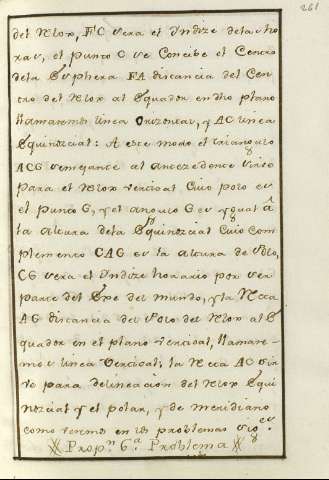 261
del Relox, FC vera el Yndize dela ho
rax, el punto C se Concibe el Centro
dela Esphera FA distancia del Cen
tro del Relox al Equador en dho plano
llamaremos linea Orizontal, y AC linea
Equinozcial: A este modo el triangulo
ACG semejante al antezedente sirve
para el Relox vertical Cuio polo es
el punto G, y el angulo G es ygual â
la altura dela Equinozcial Cuio Com
plemento CAG es la altura de Polo,
CG vera el Yndize horario por ser
parte del Exe del mundo, y la Recta
AG distancia del Polo del Relox al E
quador en el plano vertical, llamare-
mos linea vertical; la Recta AC sir
ve para delineacion del Relox Equi
nozcial y el polar, y de meridiano
como veremos en los problemas sig.es
Prop.n 6.a Problema